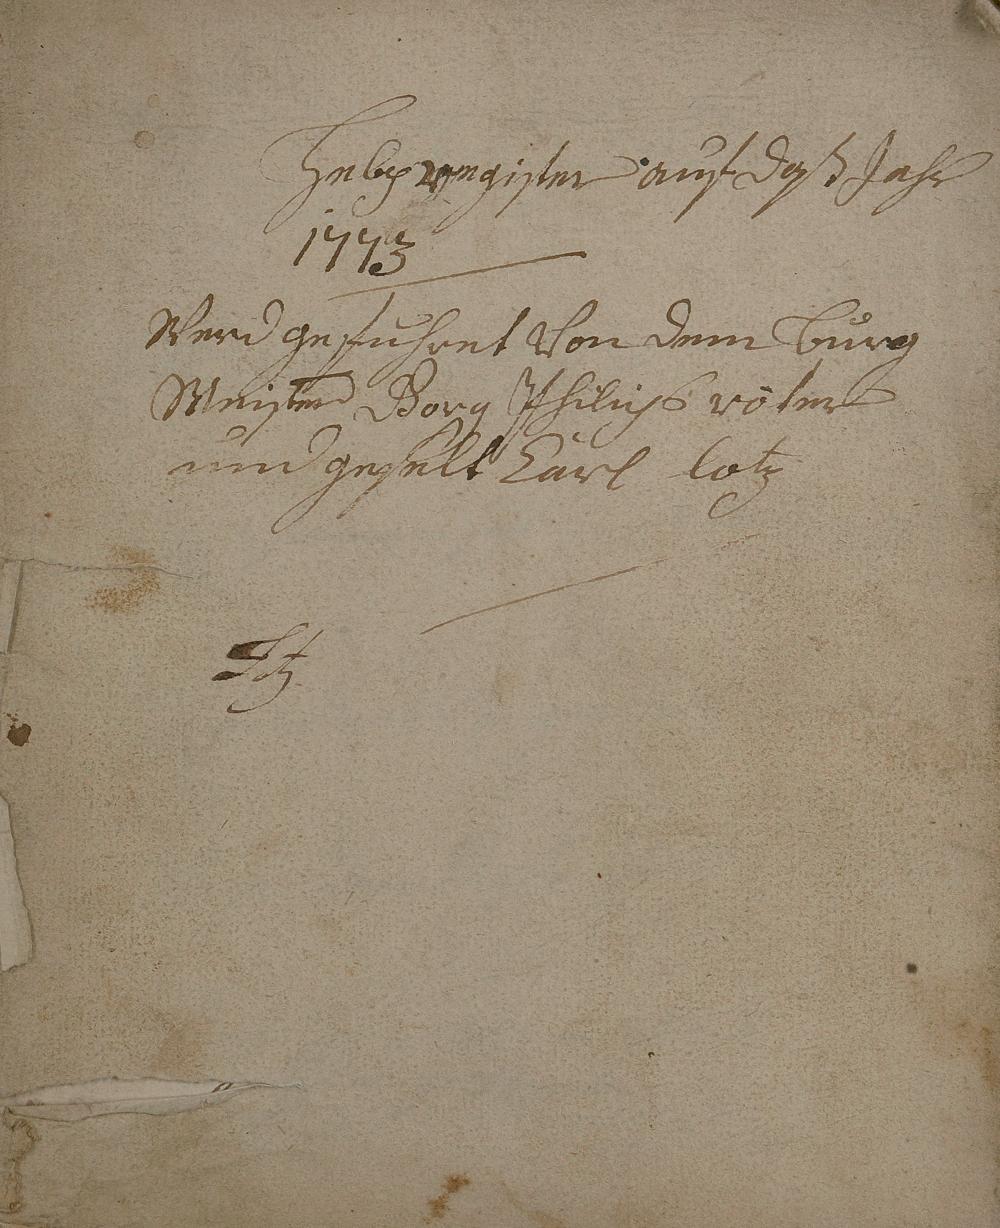 Heb register auf daß Jahr
1773
Werd gefuhret Von dem Burg
Meister Borg Philips röter
und geselt Carl lotz